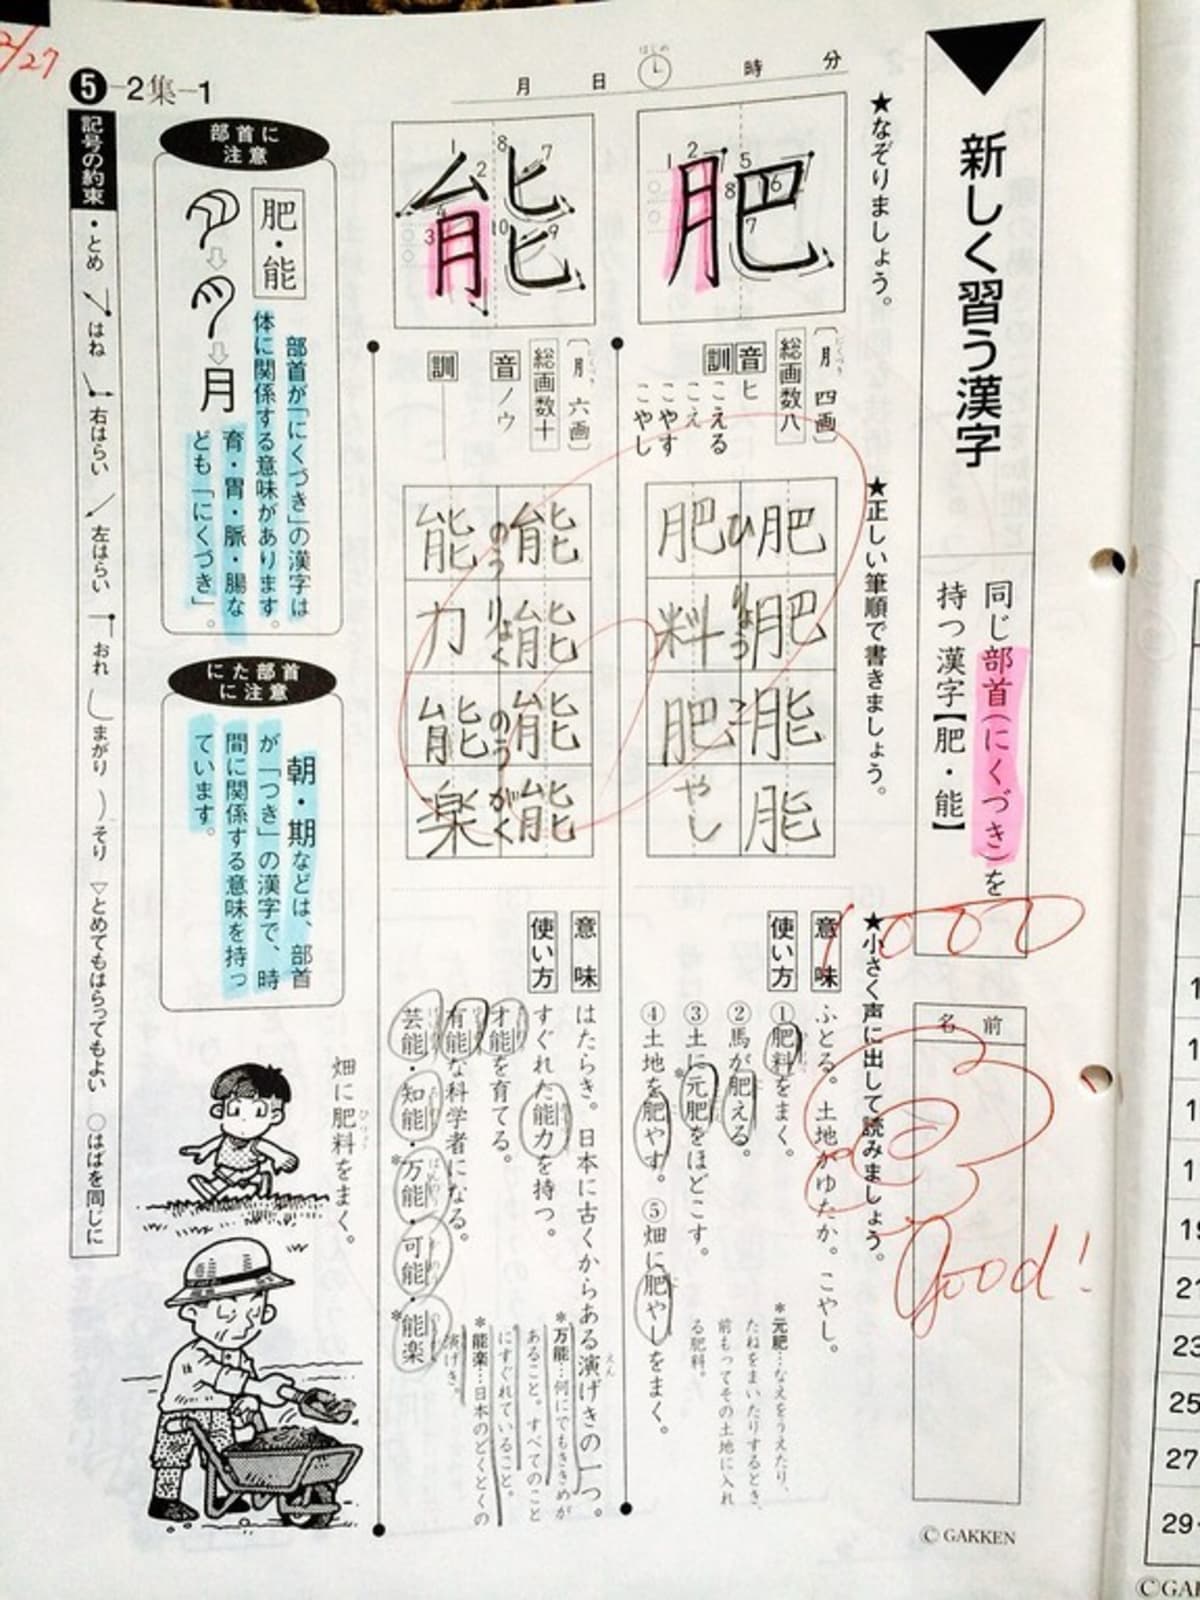 2/27
新しく習う漢字
同じ部首(にくづき)を
持つ漢字【肥・能】
名前
© GAKKEN
月 日 はじめ 時 分
★なぞりましょう。
肥
〔月 にくづき 四画〕
総画数八
音 ヒ
訓 こえる
こえ
こやす
こやし
★正しい筆順で書きましょう。
肥 肥 能 能
ひ りょう こ
肥 料 肥 やし
★小さく声に出して読みましょう。
意味 ふとる。土地がゆたか。こやし。
使い方 ①肥料をまく。
②馬が肥える。
③土に*元肥をほどこす。
④土地を肥やす。 ⑤畑に肥やしをまく。
*元肥…なえをうえたり、
たねをまいたりするとき、
前もってその土地に入れ
る肥料。
1000
good!
能
〔月 にくづき 六画〕
総画数十
音 ノウ
訓
能 能 能 能
のう りょく のう がく
能 力 能 楽
意味 はたらき。日本に古くからある演げきの一つ。
使い方 すぐれた能力を持つ。
才能を育てる。
有能な科学者になる。
芸能・知能・*万能・可能・*能楽
*万能…何にでもききめが
あること。すべてのこと
にすぐれていること。
*能楽…日本のどくとくの
演げき。
畑に肥料をまく。
5-2集-1
部首に注意
肥・能
部首が「にくづき」の漢字は
体に関係する意味があります。
育・胃・脈・腸な
ども「にくづき」。
月
にた部首に注意
朝・期などは、部首
が「つき」の漢字で、時
間に関係する意味を持っ
ています。
記号の約束 ・とめ はね 右はらい 左はらい おれ まがり そり ▽とめてもはらってもよい ○はばを同じに
19
23
25
27
29